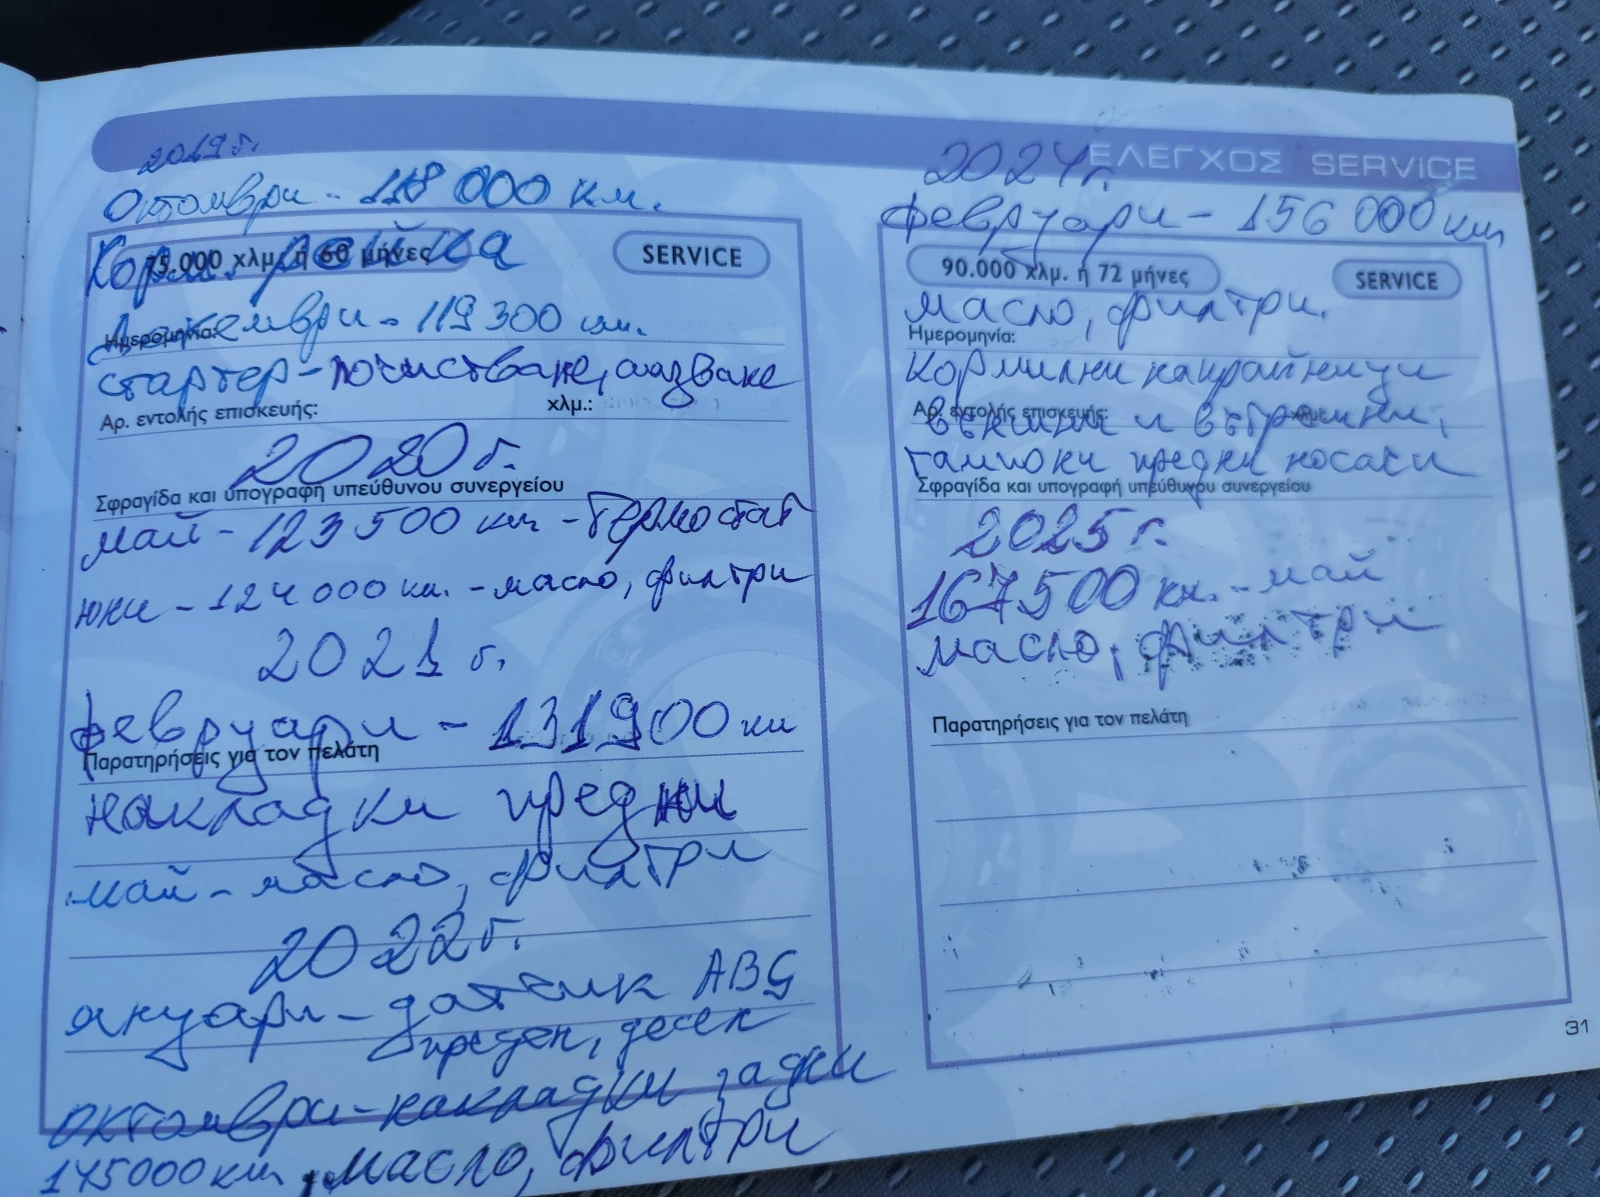 2019 г.
Октомври - 118 000 км.
75.000 χλμ. ή 60 μήνες
SERVICE
Корм. рейка
Декември - 119 300 км.
Ημερομηνία:
стартер - почистване, смазване
Αρ. εντολής επισκευής:
χλμ.:
2020 г.
Σφραγίδα και υπογραφή υπεύθυνου συνεργείου
май - 123 500 км - Термостат
юни - 124 000 км. - масло, филтри
2021 г.
февруари - 131900 км
Παρατηρήσεις για τον πελάτη
накладки предни
май - масло, филтри
2022 г.
януари - датчик ABS
преден, десен
октомври - накладки задни
145000 км, масло, филтри
ΕΛΕΓΧΟΣ SERVICE
2024 г.
февруари - 156 000 км
90.000 χλμ. ή 72 μήνες
SERVICE
масло, филтри.
Ημερομηνία:
Кормилни накрайници
Αρ. εντολής επισκευής:
външни и вътрешни,
тампони предни носачи
Σφραγίδα και υπογραφή υπεύθυνου συνεργείου
2025 г.
167500 км. - май
масло, филтри
Παρατηρήσεις για τον πελάτη
31